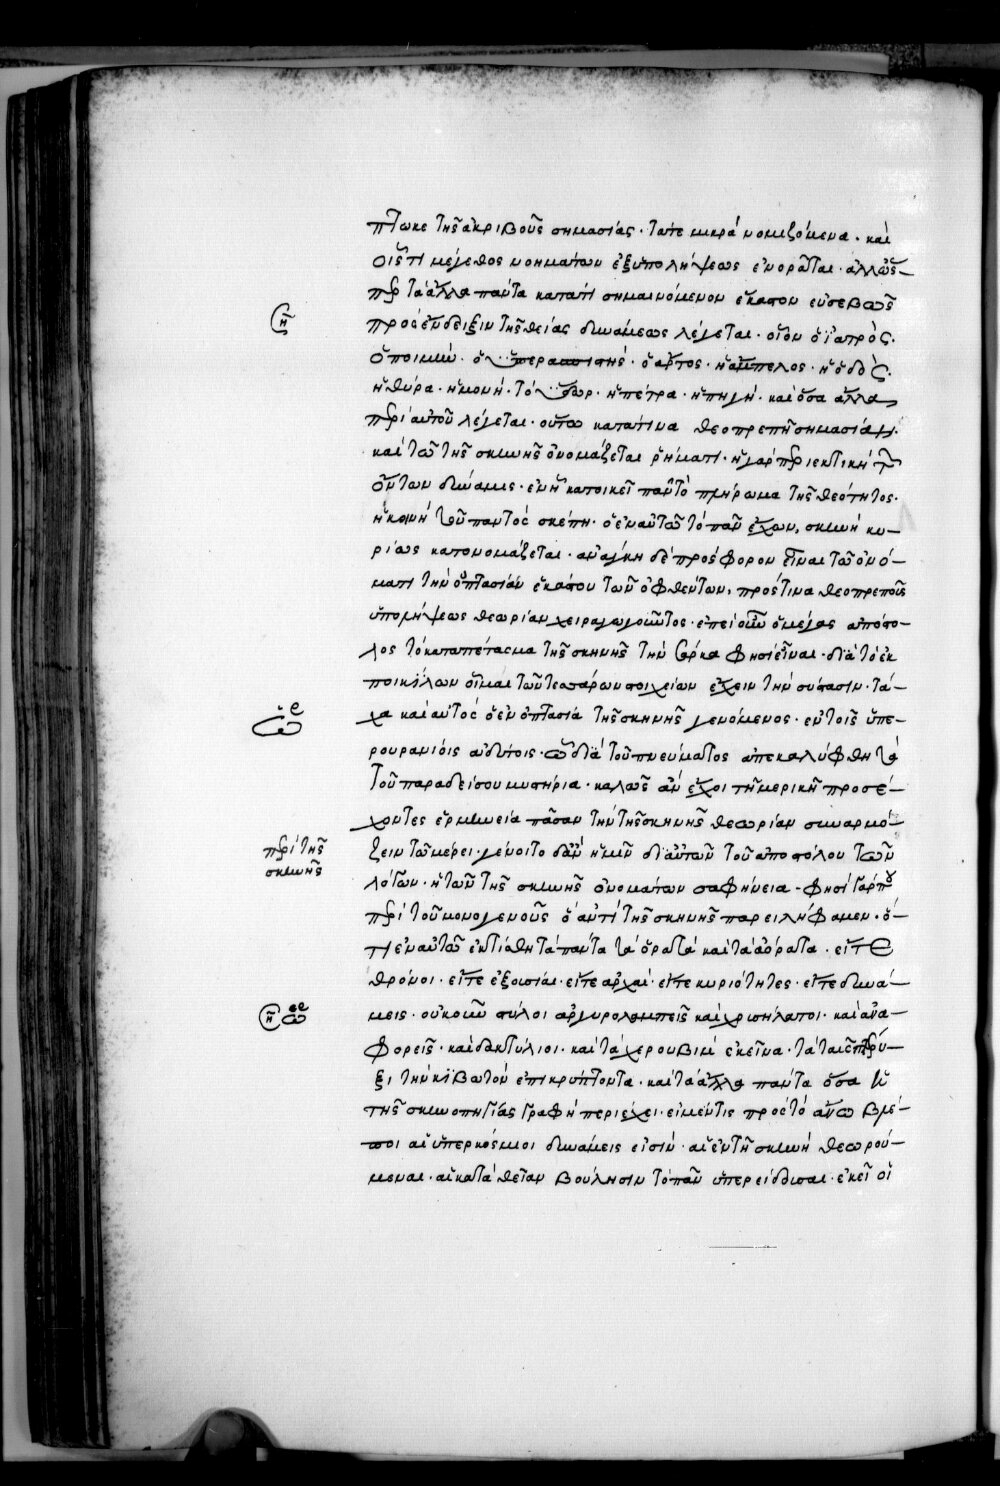 πτωκε τῆς ἀκριβοῦς σημασίας · τά τε μικρὰ νομιζόμενα · καὶ
οἷς τι μέγεθος νοημάτων ἐξ ὑπολήψεως ἐνορᾶται · ἀλλ' ὥσ–
περ τὰ ἄλλα πάντα κατά τι σημαινόμενον ἕκαστον εὐσεβῶς
πρὸς ἔνδειξιν τῆς θείας δυνάμεως λέγεται · οἷον ὁ ἰατρὸς ·
ὁ ποιμήν · ὁ ὑπερασπιστής · ὁ ἄρτος · ἡ ἄμπελος · ἡ ὁδὸς ·
ἡ θύρα · ἡ μονή · τὸ ὕδωρ · ἡ πέτρα · ἡ πηγή · καὶ ὅσα ἄλλα
περὶ αὐτοῦ λέγεται · οὕτω κατά τινα θεοπρεπῆ σημασίαν ·
καὶ τῷ τῆς σκηνῆς ὀνομάζεται ῥήματι · ἡ γὰρ περιεκτικὴ τῶν
ὄντων δύναμις · ἐν ᾗ κατοικεῖ πᾶν τὸ πλήρωμα τῆς θεότητος ·
ἡ κοινὴ τοῦ παντὸς σκέπη · ὁ ἐν αὑτῷ τὸ πᾶν ἔχων, σκηνὴ κυ–
ρίως κατονομάζεται · ἀνάγκη δὲ πρόσφορον εἶναι τῷ ὀνό–
ματι τὴν ὀπτασίαν ἑκάστου τῶν ὀφθέντων, πρός τινα θεοπρεποῦς
ὑπολήψεως θεωρίαν χειραγωγοῦντος · ἐπεὶ οὖν ὁ μέγας ἀπόστο–
λος τὸ καταπέτασμα τῆς σκηνῆς τὴν σάρκα φησὶ εἶναι · διὰ τὸ ἐκ
ποικίλων οἶμαι τῶν τεσσάρων στοιχείων ἔχειν τὴν σύστασιν · τά–
χα καὶ αὐτὸς ὁ ἐν ὀπτασίᾳ τῆς σκηνῆς γενόμενος · ἐν τοῖς ὑπε–
ρουρανίοις ἀδύτοις · ᾧ διὰ τοῦ πνεύματος ἀπεκαλύφθη τὰ
τοῦ παραδείσου μυστήρια · καλῶς ἂν ἔχοι τῇ μερικῇ προσέ–
χοντες ἑρμηνείᾳ πᾶσαν τὴν τῆς σκηνῆς θεωρίαν συναρμό–
ζειν τῷ μέρει · γένοιτο δ' ἂν ἡμῖν δι' αὐτῶν τοῦ ἀποστόλου τῶν
λόγων · ἡ τῶν τῆς σκηνῆς ὀνομάτων σαφήνεια – φησὶ γάρ που
περὶ τοῦ μονογενοῦς ὃ ἀντὶ τῆς σκηνῆς παρειλήφαμεν · ὅ–
τι ἐν αὐτῷ ἐκτίσθη τὰ πάντα τὰ ὁρατὰ καὶ τὰ ἀόρατα · εἴτε
θρόνοι · εἴτε ἐξουσίαι · εἴτε ἀρχαί · εἴτε κυριότητες · εἴτε δυνά–
μεις · οὐκοῦν στύλοι ἀργυρολαμπεῖς καὶ χρυσήλατοι · καὶ ἀνα–
φορεῖς · καὶ δακτύλιοι · καὶ τὰ χερουβὶμ ἐκεῖνα · τὰ ταῖς πτέρυ–
ξι τὴν κιβωτὸν ἐπικρύπτοντα · καὶ τὰ ἄλλα πάντα ὅσα ἡ
τῆς σκηνοπηγίας γραφὴ περιέχει · εἰ μέν τις πρὸς τὸ ἄνω βλέ–
ποι αἱ ὑπερκόσμιοι δυνάμεις εἰσὶν · αἱ ἐν τῇ σκηνῇ θεωρού–
μεναι · αἱ κατὰ θεῖαν βούλησιν τὸ πᾶν ὑπερείδουσαι · ἐκεῖ οἱ
περὶ τῆς
σκηνῆς